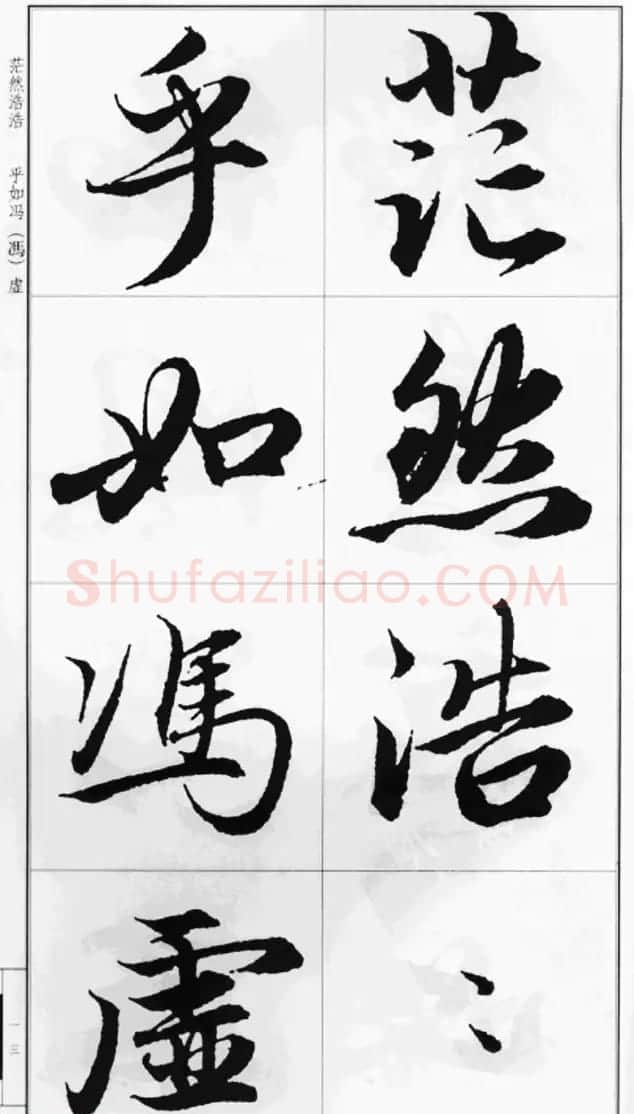 茫然浩〻
乎如馮虛
茫然浩浩 乎如冯(馮)虚
一三
Shufaziliao.COM